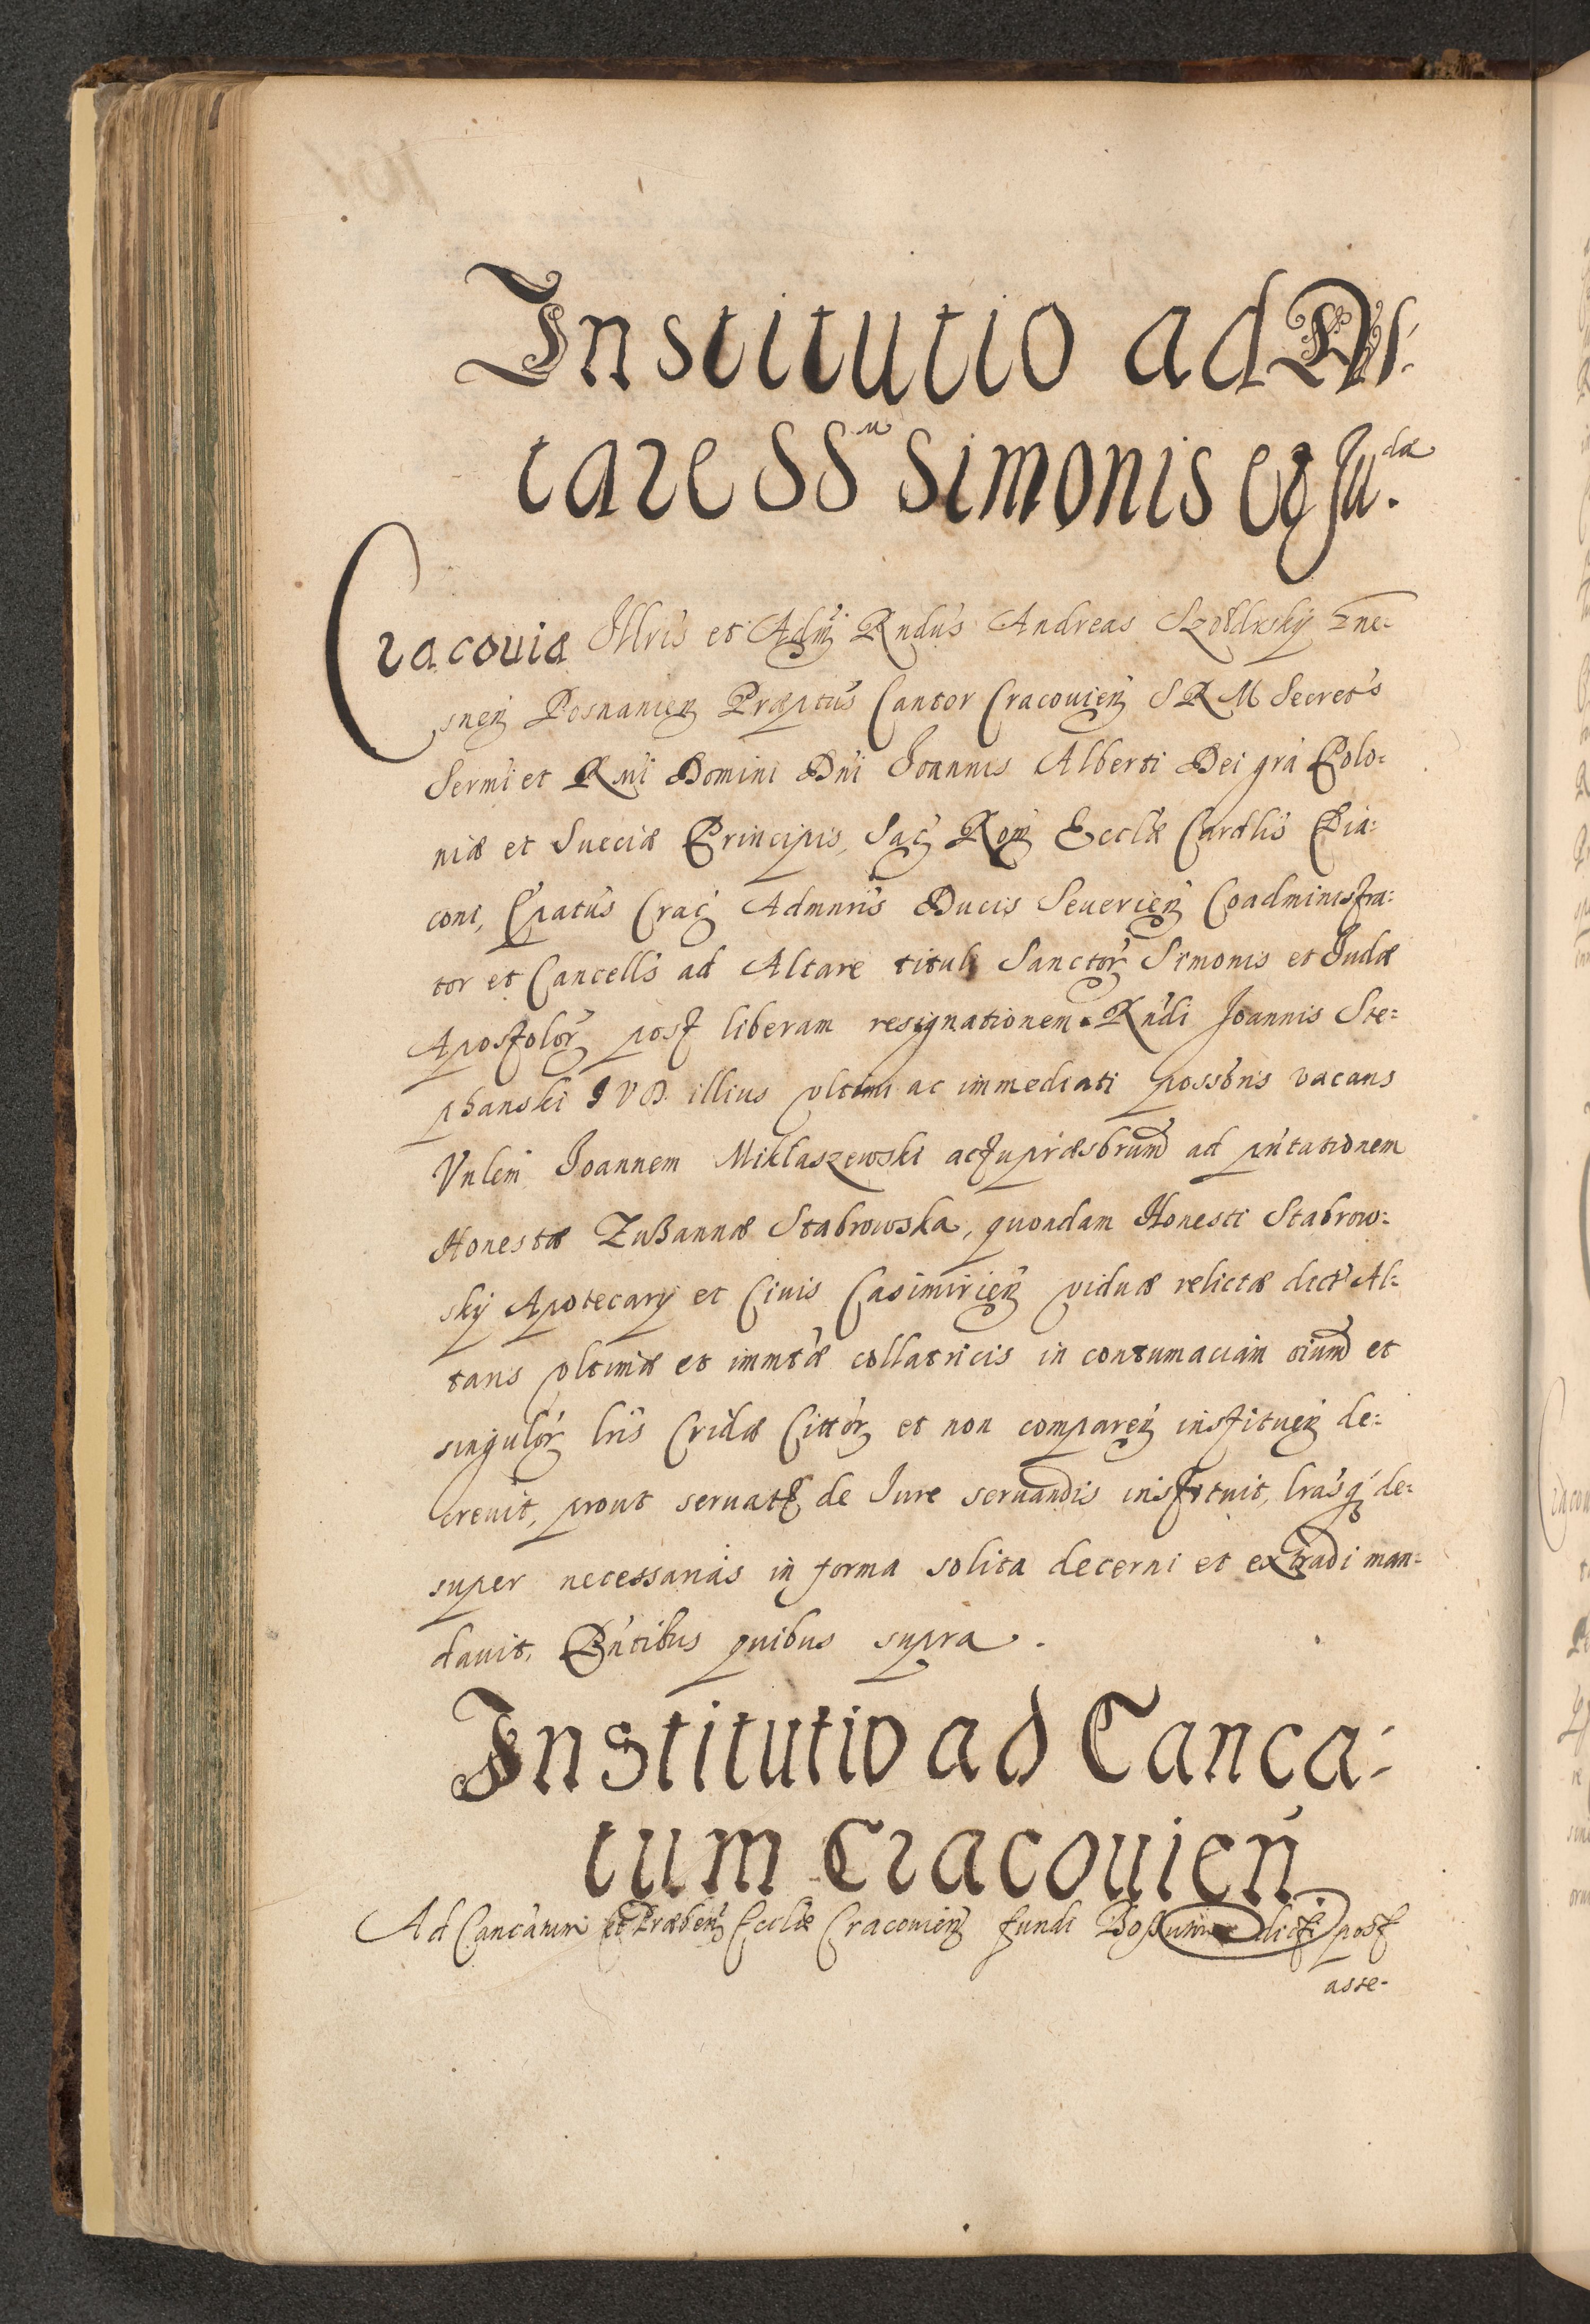 Institutio ad Al-
tare SS^m Simonis et Ju^dæ.
Cracoviæ Illris et Adm̃ Rndus Andreas Szołdrsky Gne-
snen̄ Posnanien̄ Præptus Cantor Cracouien̄ S R M Secrets
Sermi et Rmi Domini Dni Joannis Alberti Dei gra Polo-
niæ et Sueciæ Principis, Sac̄ Rom̄ Ecclæ Cardlis Dia-
coni, Epatus Crac̄ Admnris Ducis Seuerien̄ Coadministra-
tor et Cancells ad Altare tituli Sanctor̄ Simonis et Judæ
Apostolor̄ post liberam resignationem Rndi Joannis Ste-
phanski I V D illius vltimi ac immediati possoris vacans
Vnlem Joannem Miklaszewski actu præsbrum ad pntationem
Honestæ Zußannæ Stabrowska, quondam Honesti Stabrow-
sky Apotecary et Ciuis Casimirien̄ viduæ relictæ dict Al-
taris vltimæ et immtæ collatricis in contumaciam oium et
singulor̄ lris Cridæ Cittor̄ et non comparen̄ instituen̄ de-
creuit, prout seruatis de Iure seruandis instituit, lrasq̃ de-
super necessarias in forma solita decerni et extradi man-
dauit, Pntibus quibus supra.
Institutio ad Canca-
tum Cracouien̄
Ad Cancatum et Præben̄ Ecclæ Cracouien̄ fundi dicti post
asse-